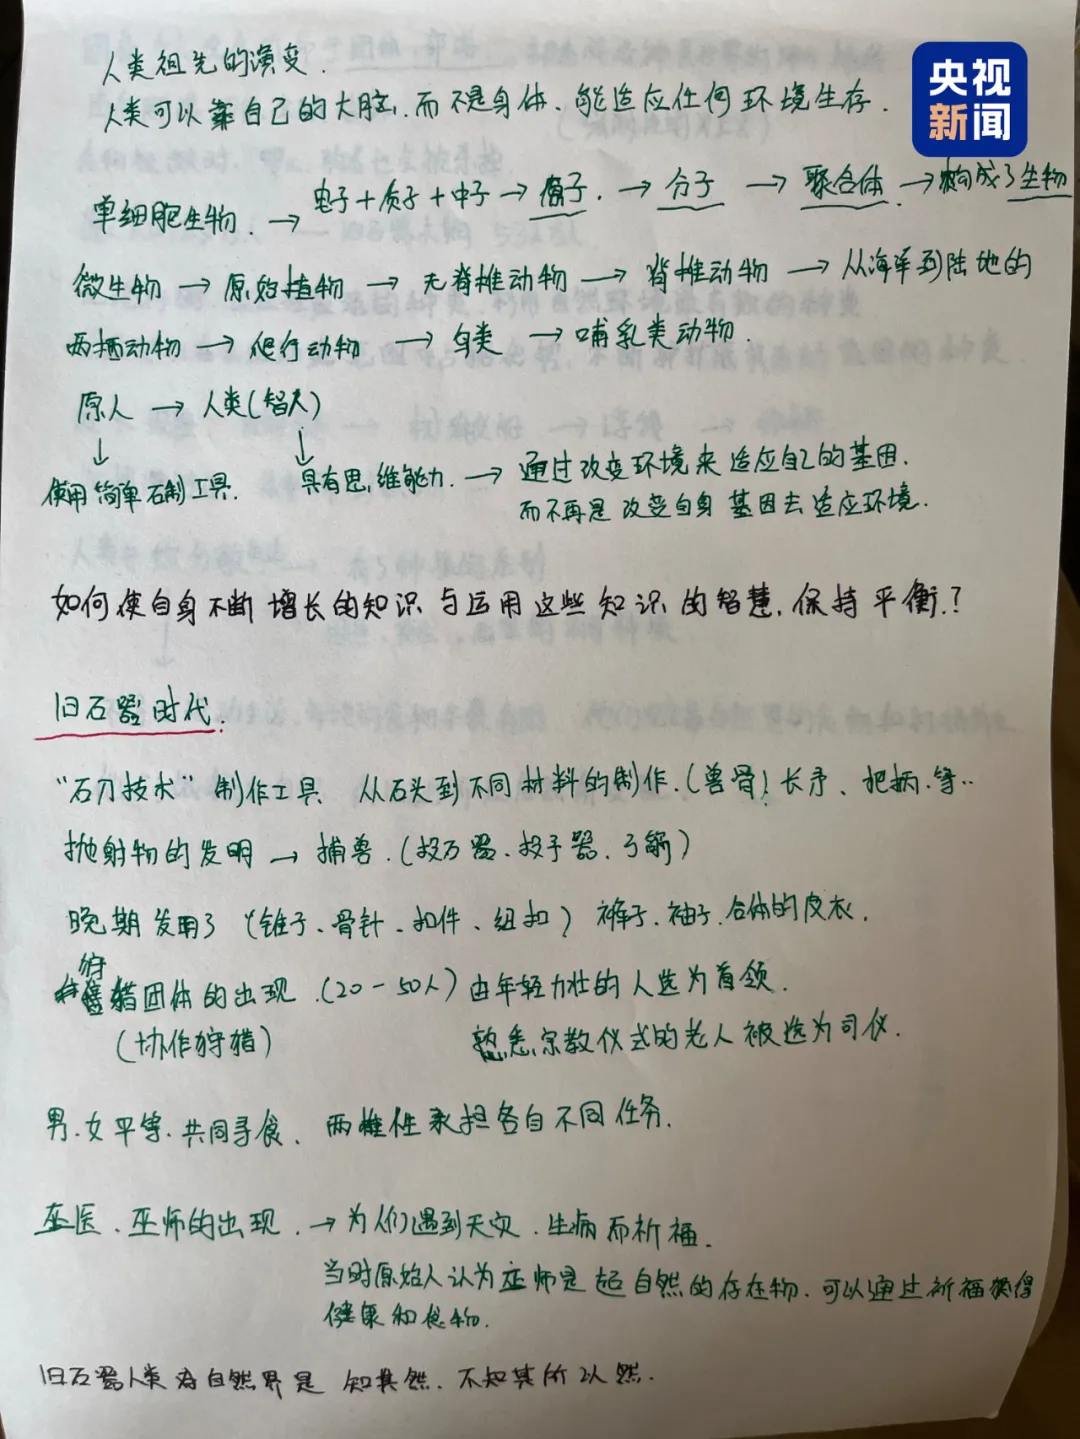 人类祖先的演变.
央视
新闻
人类可以靠自己的大脑,而不是身体、能适应任何环境生存.
单细胞生物. → 电子+质子+中子 → 原子. → 分子 → 聚合体 → 构成了生物
微生物 → 原始植物 → 无脊椎动物 → 脊椎动物 → 从海洋到陆地的
两栖动物 → 爬行动物 → 鸟类 → 哺乳类动物.
原人 → 人类(智人)
使用简单石制工具. 具有思维能力. → 通过改变环境来适应自己的基因.
而不再是改变自身基因去适应环境.
如何使自身不断增长的知识与运用这些知识的智慧,保持平衡.?
旧石器时代.
“石刀技术” 制作工具 从石头到不同材料的制作.(兽骨)长矛、把柄.等..
抛射物的发明 → 捕兽.(投石器、投矛器、弓箭)
晚期发明了(锥子、骨针、扣件、纽扣) 裤子、袖子、合体的皮衣.
狩
猎团体的出现.(20-50人) 由年轻力壮的人选为首领.
(协作狩猎) 熟悉宗教仪式的老人被选为司仪.
男.女平等.共同寻食. 两性承担各自不同任务.
巫医、巫师的出现. → 为人们遇到天灾.生病而祈福.
当时原始人认为巫师是超自然的存在物.可以通过祈福获得
健康和食物.
旧石器人类对自然界是 知其然.不知其所以然.